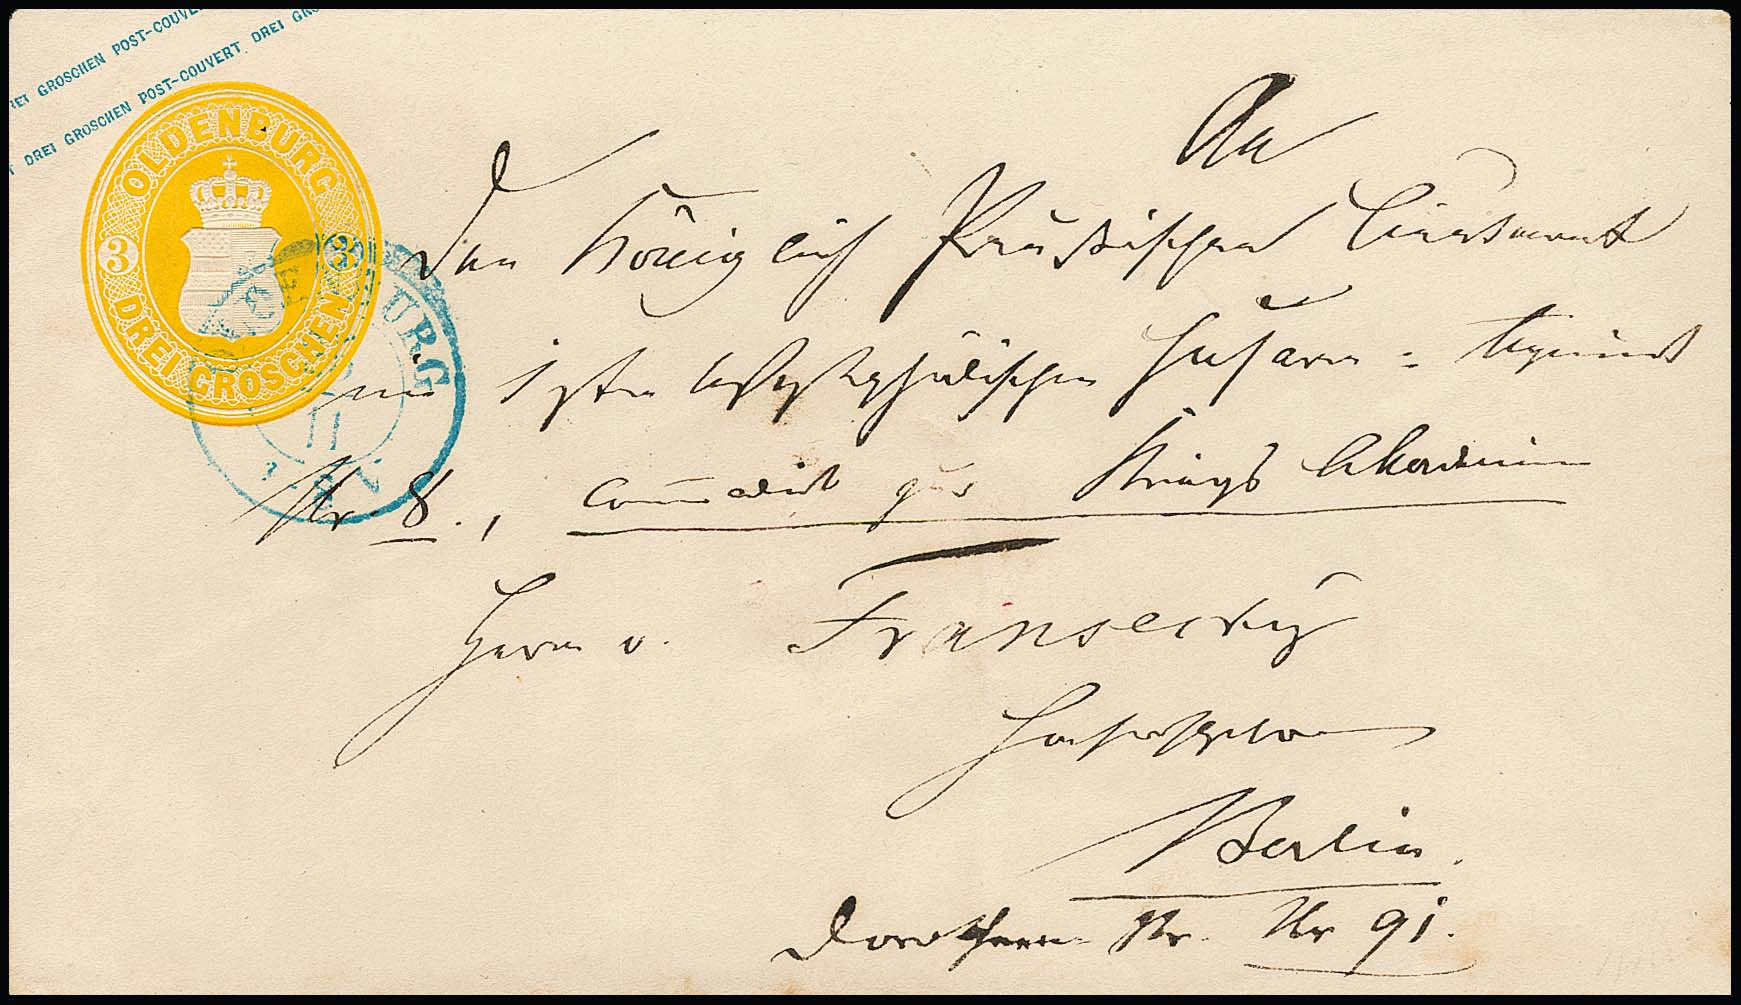 EI GROSCHEN POST-COUVE
DREI GROSCHEN POST-COUVERT DREI GRO
OLDENBURG
3 3
DREI GROSCHEN
URG
11
An
den Königlich Preußischen Lieutenant
im 1sten Westphälischen Husaren=Regiment
Nr 8., command zur Kriegs Akademie
Herrn v. Fransecky
Hochwohlgeboren
Berlin.
Dorotheen Str. Nr 91.